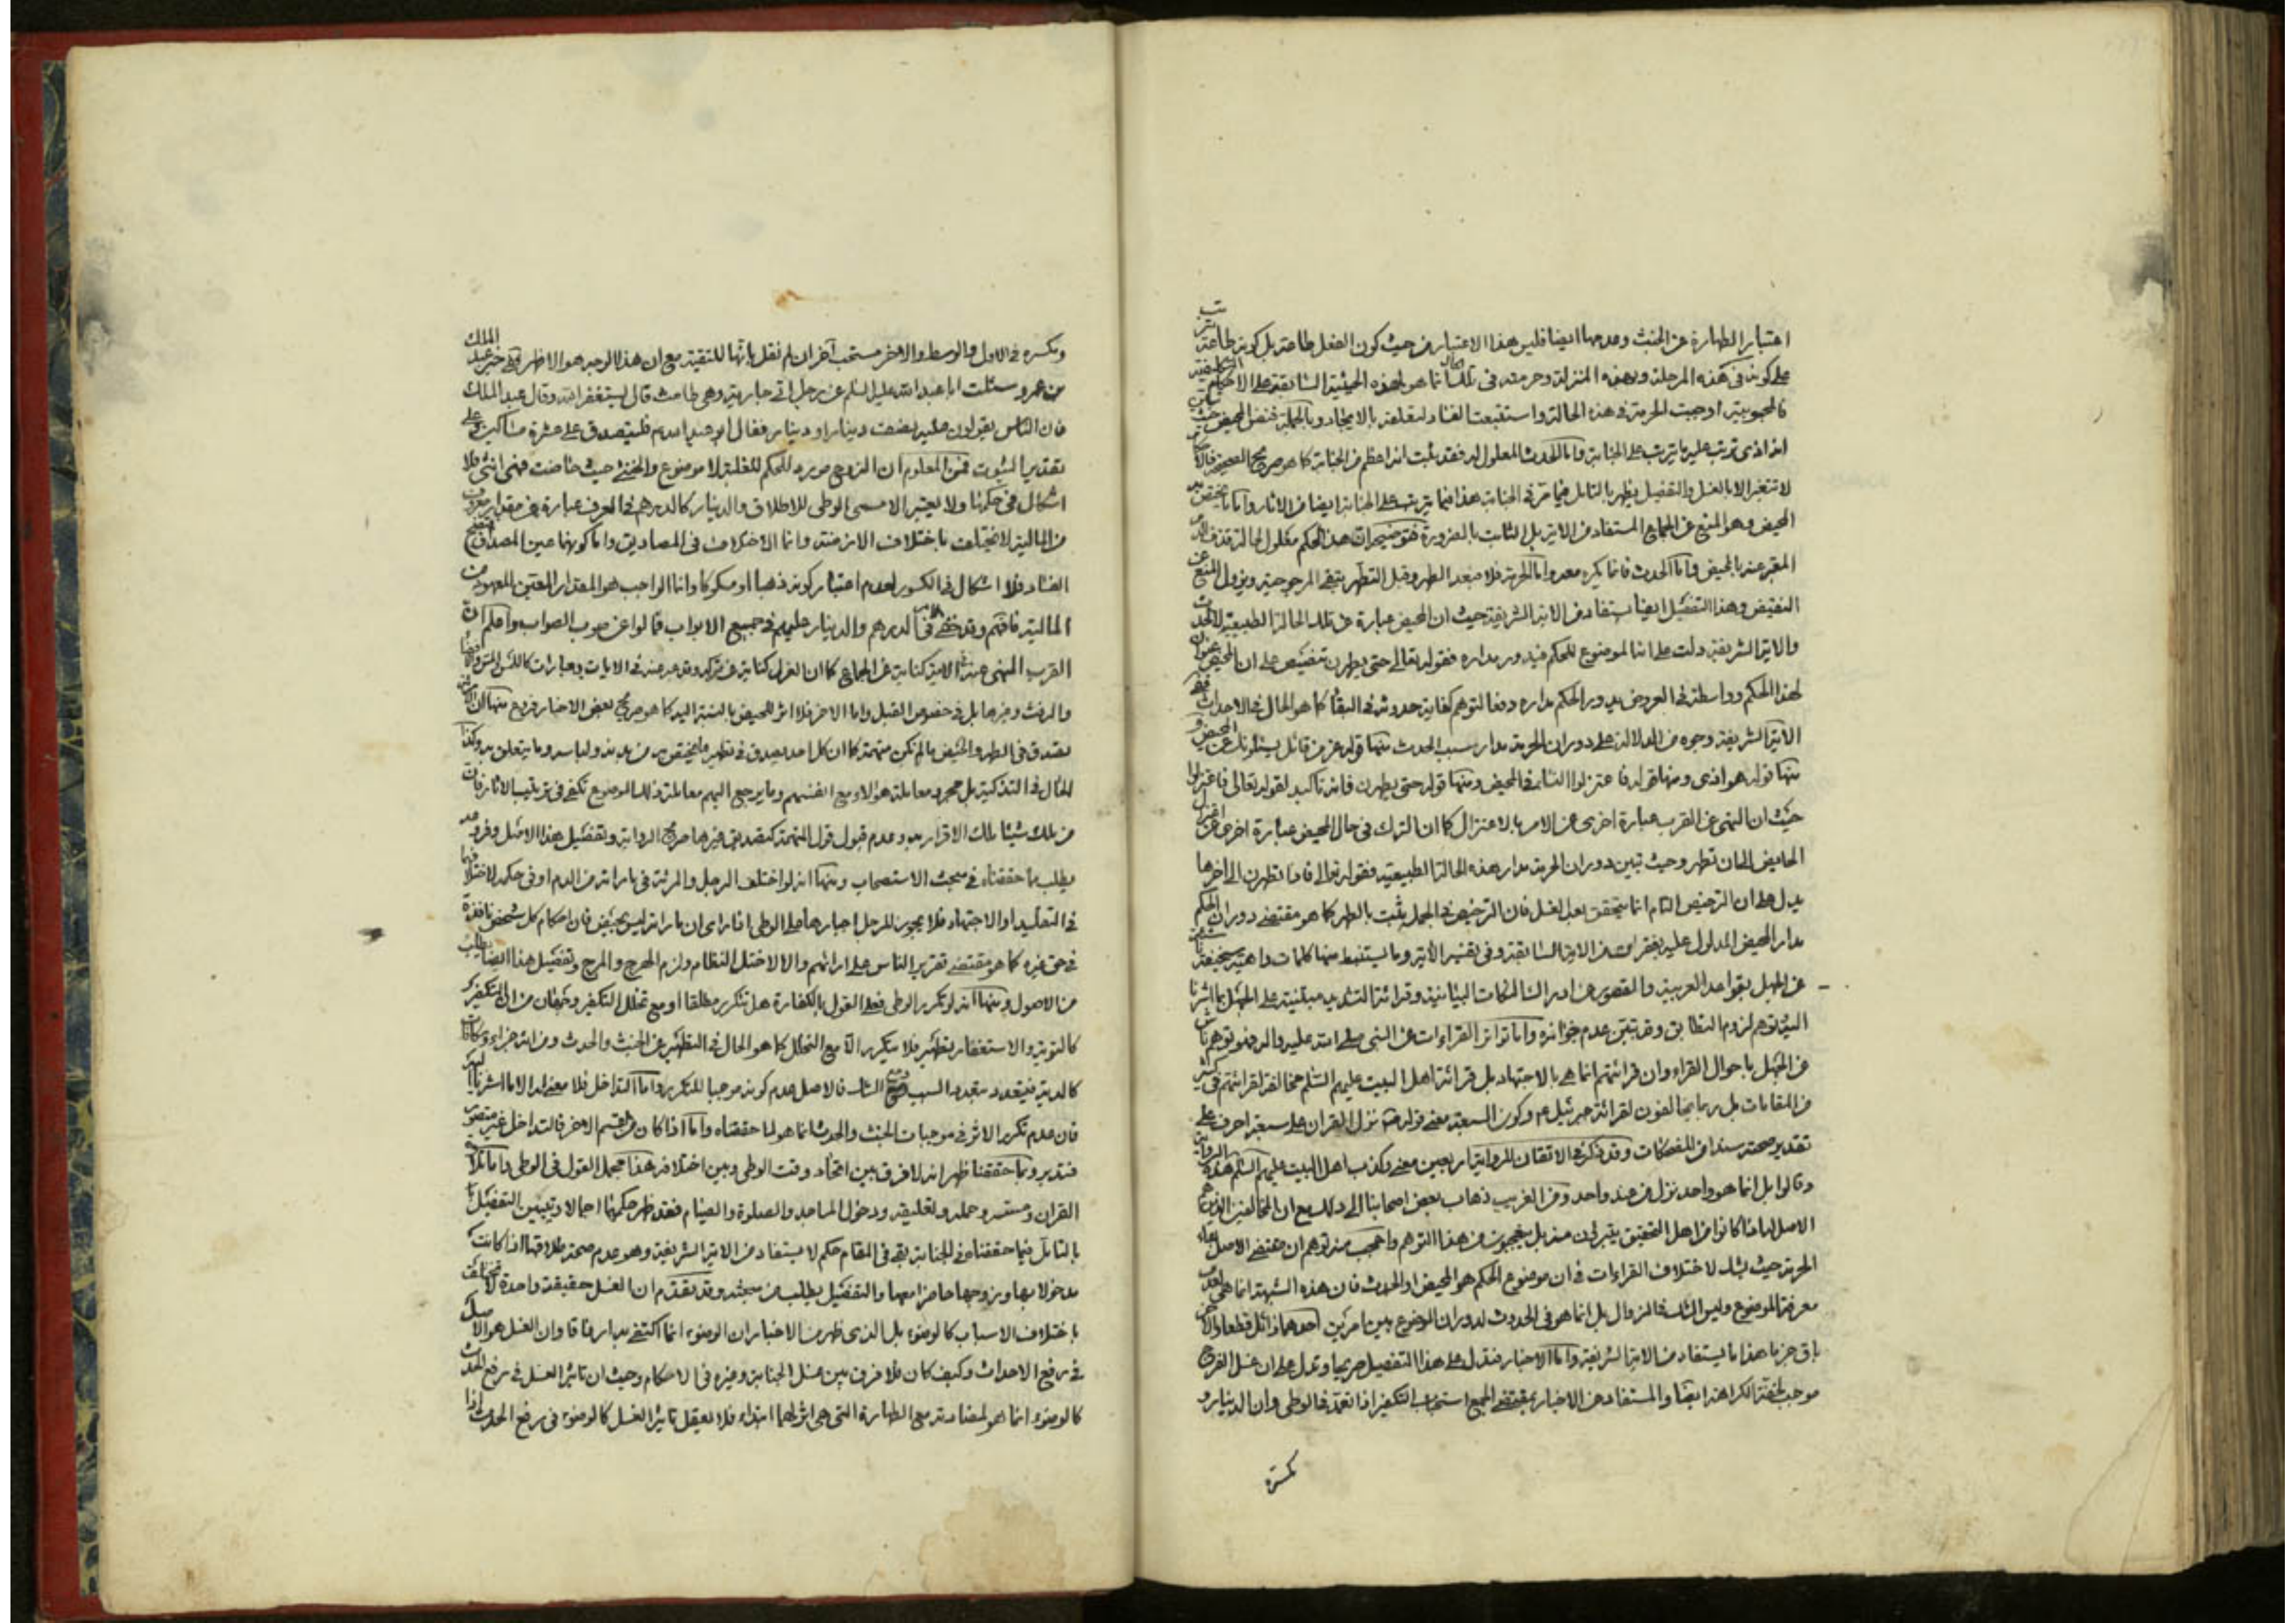 اعتبار الطهارة عن الخبث وعدمها ايضا فليس هذا الاعتبار من حيث كون الفعل طاعة بل كونه طاعة
على كونه في هذه المرحلة وبهذه المنزلة وحرمته في تلك الحال انما هو لهذه الحيثية السابقة على الاحكام
فالمحبوبية اوجبت الحرمة في هذه الحالة واستتبعت الفساد لتعلقه بالايجاد وبالجملة فنفس المحيض حيث
انه اذى ترتب عليه ما يترتب على الجنابة واما الحدث المعلول له فقد ثبت انه اعظم من الجنابة كما هو صريح الصحيحة
لا تتغير الا بالغسل والتفصيل يظهر بالتامل فيما مر في الجنابة هذا فيما يترتب على الجنابة ايضا من الاثار واما ما يختص
المحيض وهو المنع عن الجماع المستفاد من الاية بل الثابت بالضرورة فتوضيح المرام ان هذا الحكم معلول لحالة قذف الدم
المعبر عنه بالمحيض واما الحدث فانما يكره معه واما الحرمة فلا فبعد الطهر وقبل التطهر تبقى المرجوحية ويزول المنع عن
النقيض وهذا التفصيل ايضا يستفاد من الاية الشريفة حيث ان المحيض عبارة عن تلك الحالة الطبيعية لا الحدث
والاية الشريفة دلت على انه الموضوع للحكم فيدور مداره فقوله تعالى حتى يطهرن تنصيص على ان المحيض عنوان
لهذا الحكم وواسطة في العروض يدور الحكم مداره دفعا لتوهم كفاية حدوثه في البقاء كما هو الحال في الاحداث ففي
الاية الشريفة وجوه من الدلالة على دوران الحرمة مدار سبب الحدث منها قوله عز من قائل يسئلونك عن المحيض و
منها قوله هو اذى ومنها قوله فاعتزلوا النساء في المحيض ومنها قوله حتى يطهرن فانه تاكيد لقوله تعالى فاعتزلوا
حيث ان النهي عن القرب عبارة اخرى عن الامر بالاعتزال كما ان الترك في حال المحيض عبارة اخرى عن اعتزال
الحايض الى ان تطهر وحيث تبين دوران الحرمة مدار هذه الحالة الطبيعية فقوله تعالى فاذا تطهرن الى اخرها
يدل على ان الترخيص التام انما يتحقق بعد الغسل فان الترخيص في الجملة يثبت بالطهر كما هو مقتضى دوران الحكم
مدار المحيض المدلول عليه بفقرات من الاية السابقة وفي تفسير الاية وما يستنبط منها كلمات واهية سخيفة ناشئة
عن الجهل بقواعد العربية والقصور عن ادراك النكات البيانية وقرائة التشديد مبتنية على الجهل بما اشرنا
اليه توهم لزوم التطابق وقد تبين عدم جوازه واما تواتر القراءات عن النبي صلى الله عليه واله فهو توهم ناش
عن الجهل باحوال القراء وان قرائتهم انما هي بالاجتهاد بل قرائة اهل البيت عليهم السلام مخالفة لقرائتهم في كثير
من المقامات بل ربما يخالفون لقرائة جبرئيل ع وكون السبعة معنى قوله ص نزل القران على سبعة احرف على
تقدير صحة سنده من المضحكات وقد ذكر في الاتقان للرواية اربعين معنى وكذب اهل البيت عليهم السلم هذه الرواية
وقالوا بل انما هو واحد نزل من عند واحد ومن الغريب ذهاب بعض اصحابنا الى ذلك مع ان المخالفين الذين هم
الاصل لما اذا كانوا من اهل التحقيق يتبرئون منه بل يتعجبون من هذا التوهم واعجب منه توهم ان مقتضى الاصل بقاء
الحرمة حيث يشك لاختلاف القراءات في ان موضوع الحكم هو المحيض او الحدث فان هذه الشبهة انما هي لعدم
معرفة الموضوع وليس الشك في الزوال بل انما هو في الحدوث لدوران الموضوع بين امرين احدهما زائل قطعا والاخر
باق جزما هذا ما يستفاد من الاية الشريفة واما الاخبار فتدل على هذا التفصيل صريحا وتدل على ان غسل الفرج
موجب لخفة الكراهة ايضا والمستفاد من الاخبار بمقتضى الجمع استحباب التكفير اذا تعمد في الوطى وان الدينار و
كسره
وكسره في الاول والوسط والاخر مستحب آخر ان لم نقل بانها للتقية مع ان هذا الوجه هو الاظهر ففي خبر عبد الملك
بن عمرو سئلت ابا عبد الله عليه السلم عن رجل اتى جاريته وهي طامث قال يستغفر الله وقال عبد الملك
فان الناس يقولون عليه نصف دينار او دينار فقال ابو عبد الله ع فليتصدق على عشرة مساكين وعلى
تقدير الثبوت فمن المعلوم ان الزوج مورد للحكم للغلبة لا موضوع والخنثى حيث حاضت فهي انثى فلا
اشكال في حكمها ولا يعتبر الا مسمى الوطى للاطلاق والدينار كالدرهم في العرف عبارة عن مقدار معروف
من المالية لا تختلف باختلاف الازمنة وانما الاختلاف في المصاديق واما كونهما عين المصداق فتضح
الفساد فلا اشكال في الكسور لعدم اعتبار كونه ذهبا او مسكوكا وانما الواجب هو المقدار المعين المعهود من
المالية فافهم وقد خفى الامر في الدرهم والدينار عليهم في جميع الابواب فمالوا عن صوب الصواب واعلم ان
القرب المنهي عنه في الاية كناية عن الجماع كما ان العزل كناية عن تركه وقد عبر عنه في الايات بعبارات كاللمس والمس والافضاء
والرفث وغيرها بل في خصوص القبل واما الاخر فلا اثر للحيض بالنسبة اليه كما هو صريح بعض الاخبار فروع منها ان المرئة
تصدق في الطهر والحيض ما لم تكن متهمة كما ان كل احد يصدق في تطهير ما يختص به من بدنه ولباسه وما يتعلق به وكذا
الحال في التذكية بل مجرد معاملة هؤلاء مع انفسهم وما يرجع اليهم معاملة ذلك الموضوع تكفي في ترتيب الاثار فان
من ملك شيئا ملك الاقرار به وعدم قبول قول المتهمة كتصديق غيرها صريح الرواية وتفصيل هذا الاصل وفروعه
يطلب مما حققناه في مبحث الاستصحاب ومنها انه لو اختلف الرجل والمرئة في ما راته من الدم او في حكمه لاختلافهما
في التقليد او الاجتهاد فلا يجوز للرجل اجبارها على الوطى اذا راى ان ما راته ليس بحيض فان احكام كل شخص نافذة
في حق غيره كما هو مقتضى تقرير الناس على ارائهم والا لاختل النظام ولزم الهرج والمرج وتفصيل هذا ايضا يطلب
من الاصول ومنها انه لو تكرر الوطى فعلى القول بالكفارة هل تتكرر مطلقا او مع تخلل التكفير وجهان من ان التكفير
كالتوبة والاستغفار تطهير فلا يتكرر الا مع التخلل كما هو الحال في التطهير عن الخبث والحدث ومن انه جزاء ومكافات
كالدية فيتعدد بتعدد السبب ومع الشك فالاصل عدم كونه موجبا للتكرر واما التداخل فلا معنى له الا ما اشرنا اليه
فان عدم تكرر الاثر في موجبات الخبث والحدث انما هو لما حققناه واما اذا كان من قسم الاخر فالتداخل غير متصور
فتدبر ومما حققنا ظهر انه لا فرق بين اتحاد وقت الوطى وبين اختلافه هذا مجمل القول في الوطى واما تلاوة
القران ومسه وحمله وتعليقه ودخول المساجد والصلوة والصيام فقد ظهر حكمها اجمالا ويتبين التفصيل
بالتامل فيما حققناه في الجنابة بقى في المقام حكم لا يستفاد من الاية الشريفة وهو عدم صحة طلاقها اذا كانت
مدخولا بها وزوجها حاضرا معها والتفصيل يطلب من مبحثه وقد تقدم ان الغسل حقيقة واحدة لا تختلف
باختلاف الاسباب كالوضوء بل الذي ظهر من الاخبار ان الوضوء انما اكتفى به ارفاقا وان الغسل هو الاصل
في رفع الاحداث وكيف كان فلا فرق بين غسل الجنابة وغيره في الاحكام وحيث ان تاثير الغسل في رفع الحدث
كالوضوء انما هو لمضادته مع الطهارة التي هي اثر لهما ابتداء فلا يعقل تاثير الغسل كالوضوء في رفع الحدث اذا